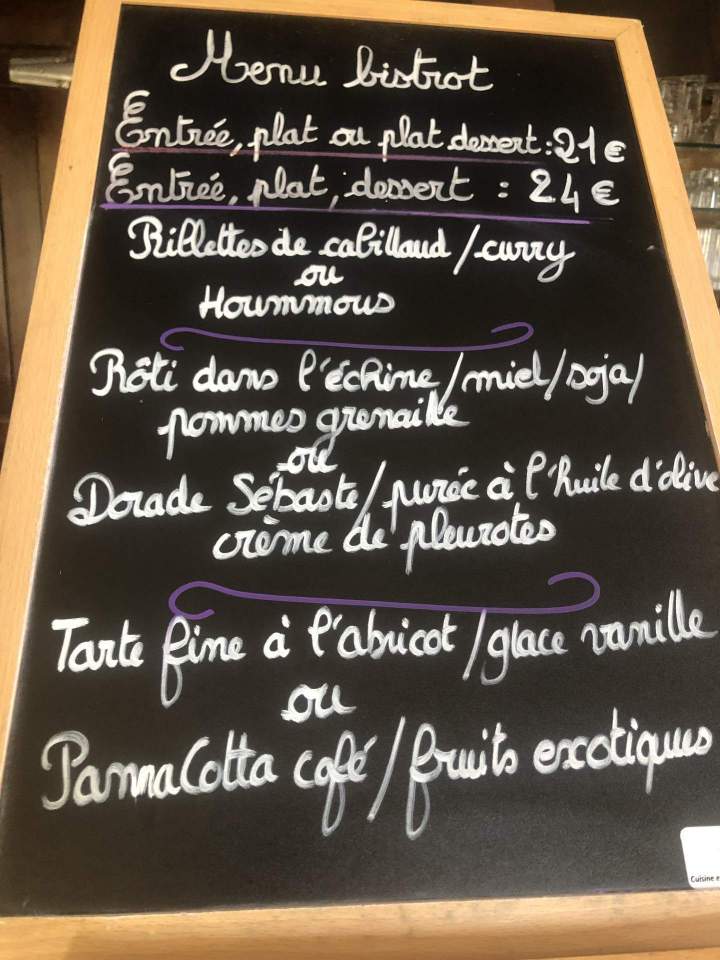 Menu bistrot
Entrée, plat ou plat dessert : 21 €
Entrée, plat, dessert : 24 €
Rillettes de cabillaud / curry
ou
Hoummous
Rôti dans l'échine / miel / soja /
pommes grenaille
ou
Dorade Sébaste / purée à l'huile d'olive
crème de pleurotes
Tarte fine à l'abricot / glace vanille
ou
PannaCotta café / fruits exotiques
Cuisine e